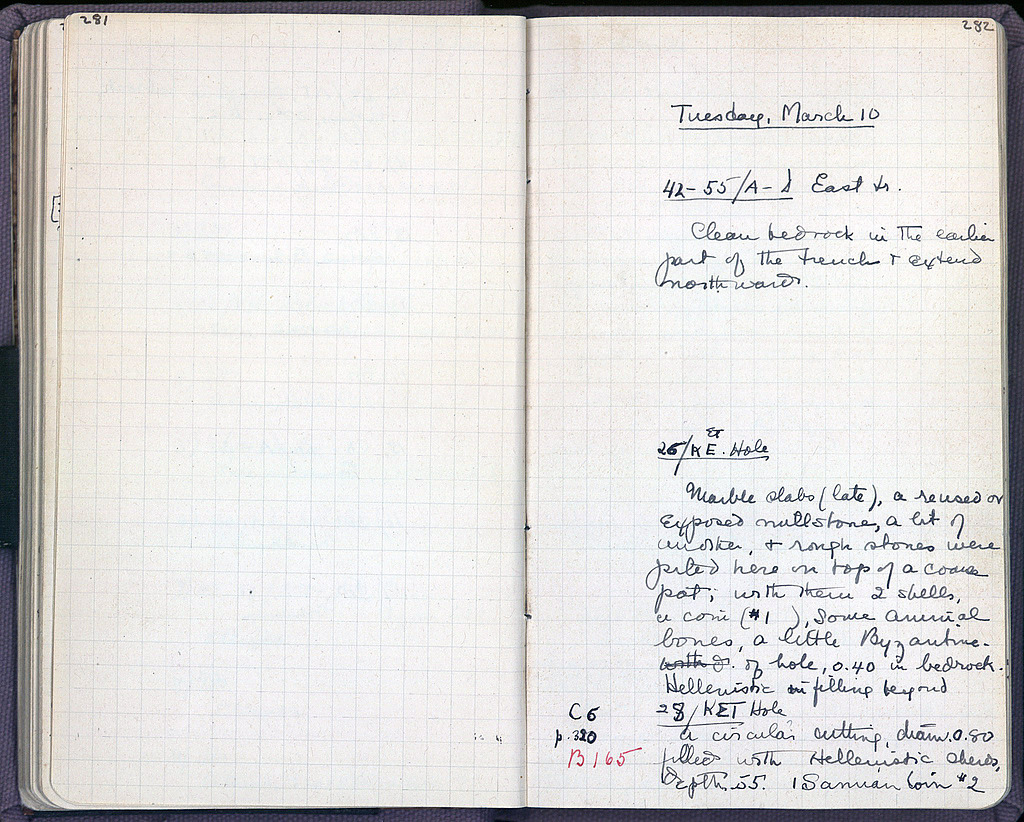 281
282
Tuesday, March 10
42-55/A-Δ East tr.
Clean bedrock in the earlier
part of the trench & extend
northwards.
ΣΤ
26/KE. Hole
Marble slabs (late), a reused or
exposed millstone, a bit of
another, & rough stones were
piled here on top of a coarse
pot; with them 2 shells,
a coin (#1 ), some animal
bones, a little Byzantine.
of hole, 0.40 in bedrock.
Hellenistic filling beyond
C6 28/KΣΤ Hole
p.320 a circular cutting, diam. 0.80
B165 filled with Hellenistic sherds,
Depth .55. 1 Samian Coin #2